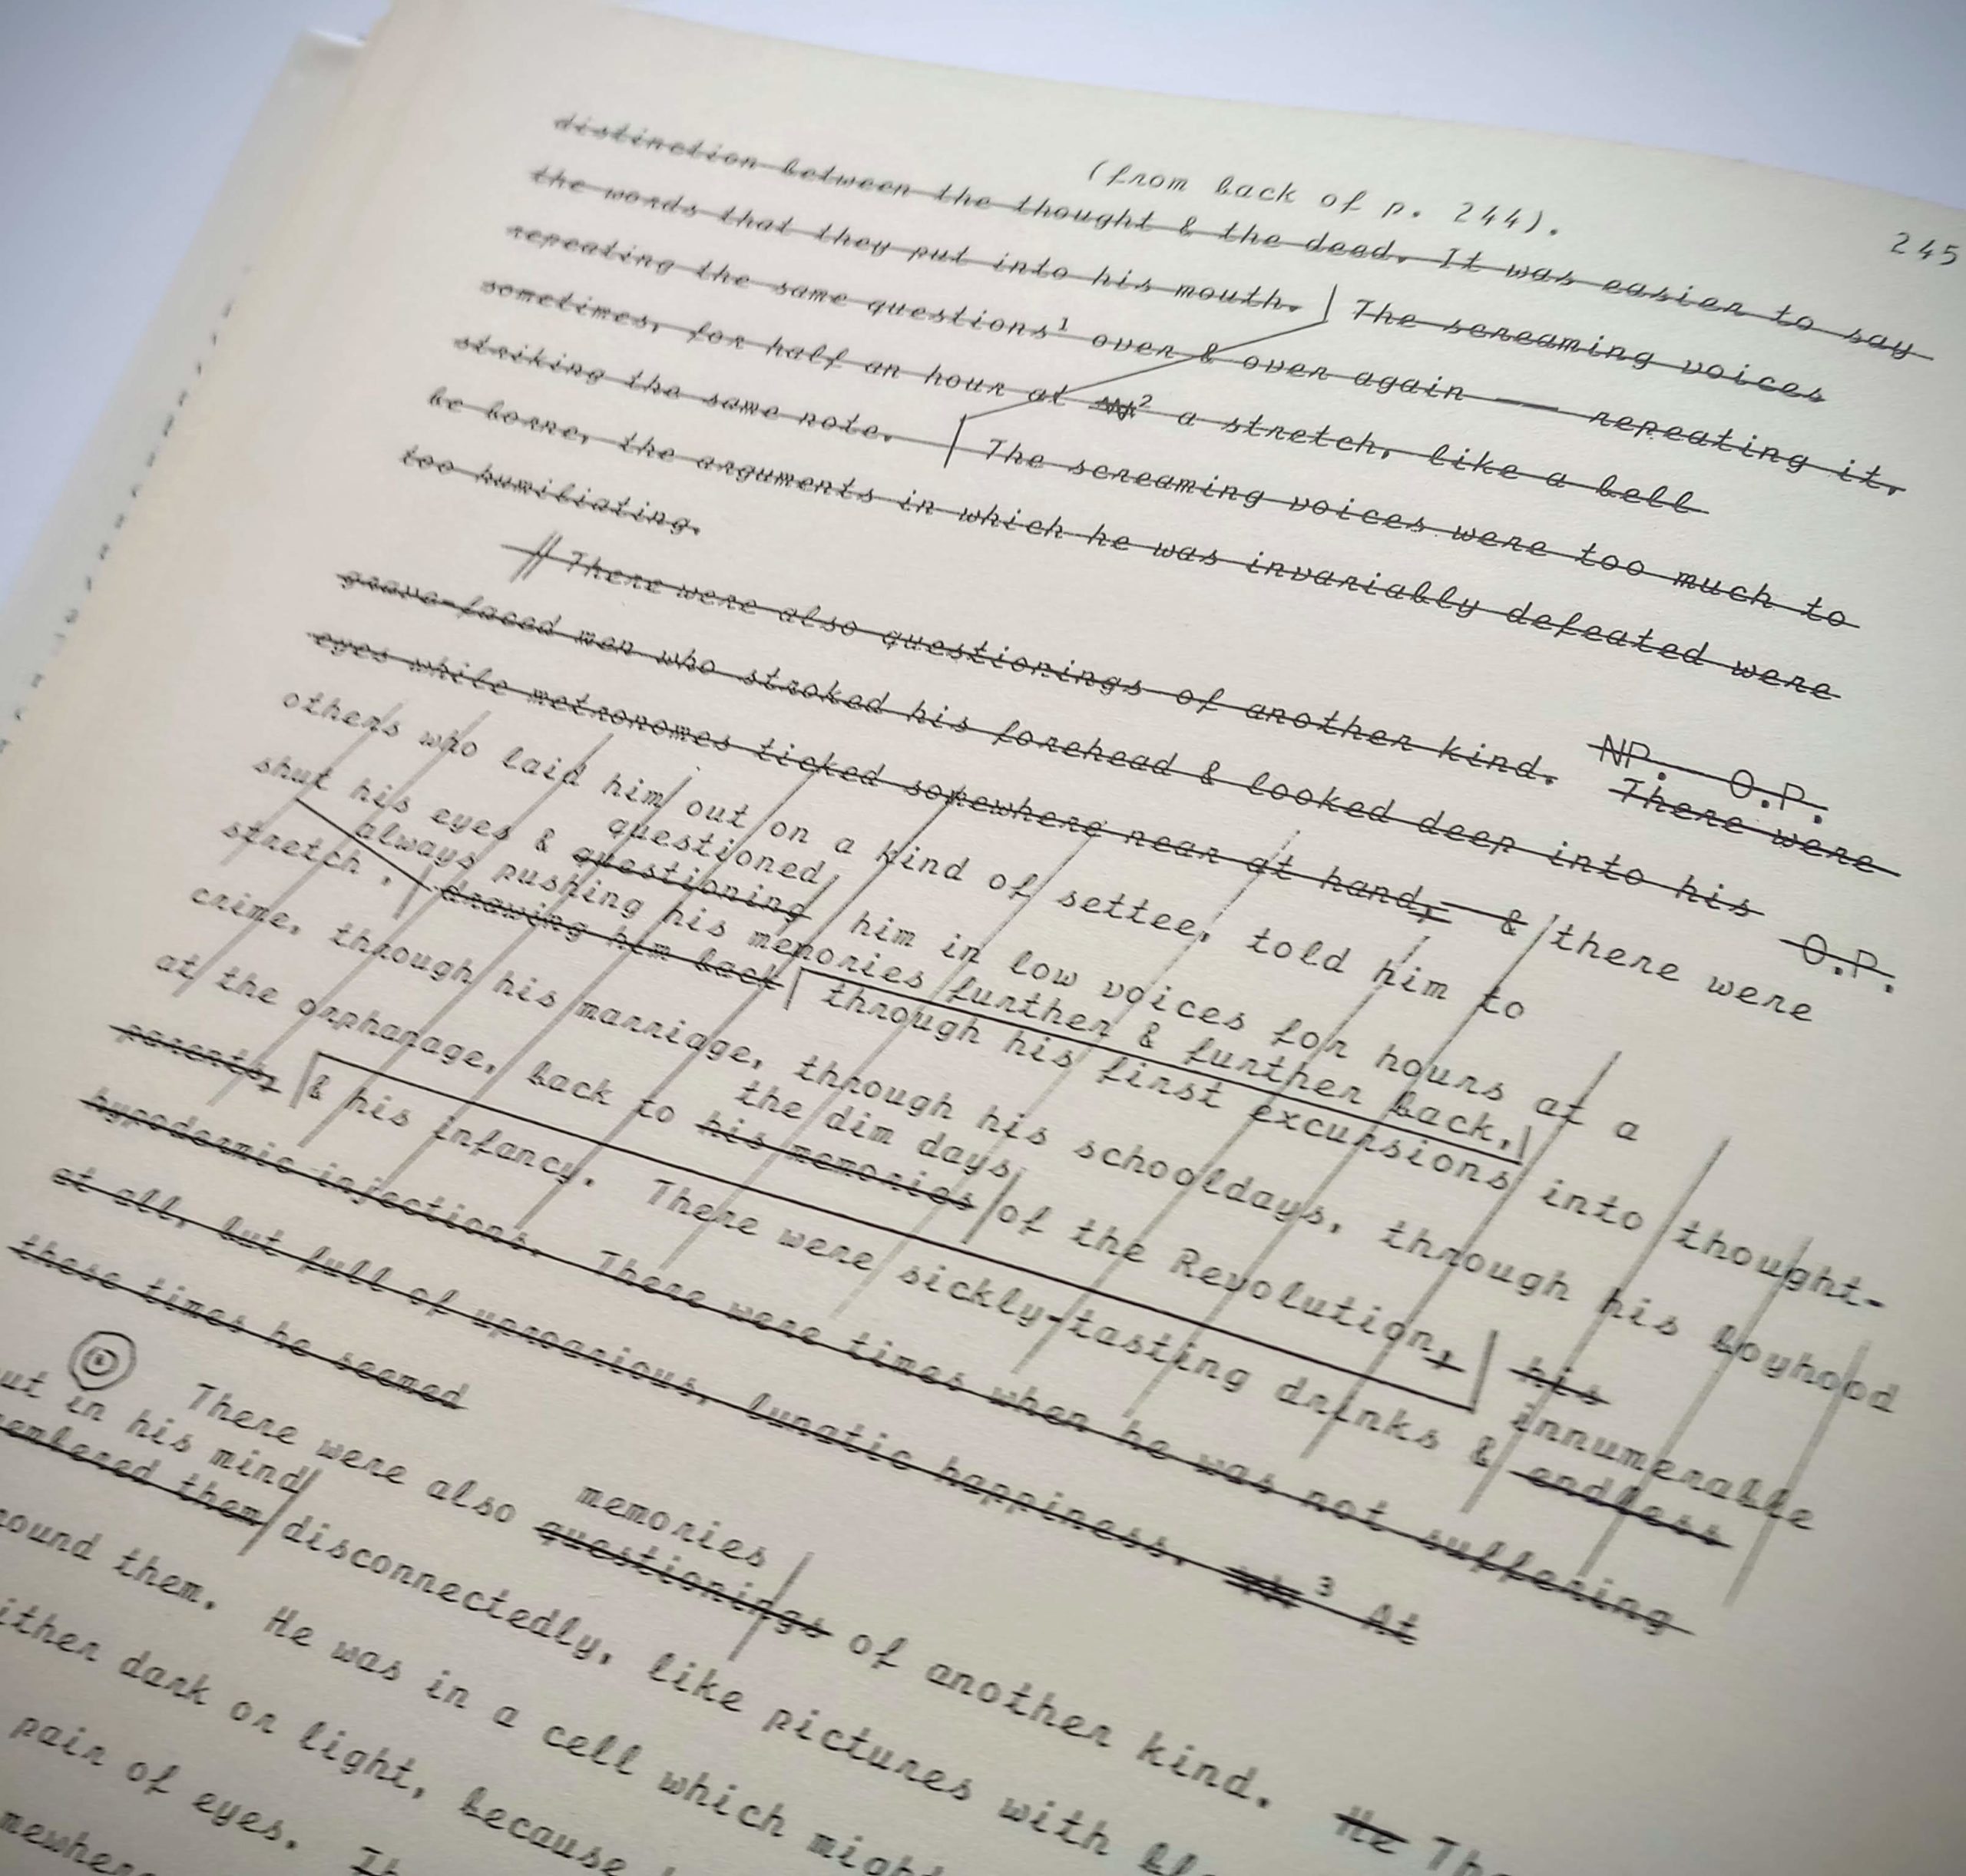 (from back of p. 244).
245
distinction between the thought & the deed. It was easier to say
the words that they put into his mouth. The screaming voices
repeating the same questions¹ over & over again — repeating it,
sometimes, for half an hour at ² a stretch, like a bell
striking the same note. The screaming voices were too much to
be borne, the arguments in which he was invariably defeated were
too humiliating.
NP. O.P.
// There were also questionings of another kind. There were
grave-faced men who stroked his forehead & looked deep into his
O.P.
eyes while metronomes ticked somewhere near at hand, & there were
others who laid him out on a kind of settee, told him to
questioned
shut his eyes & questioning him in low voices for hours at a
always pushing his memories further & further back,
stretch, drawing him back through his first excursions into thought-
crime, through his marriage, through his schooldays, through his boyhood
the dim days
at the orphanage, back to his memories of the Revolution, his
innumerable
parents, & his infancy. There were sickly-tasting drinks & endless
hypodermic injections. There were times when he was not suffering
at all, but full of uproarious, lunatic happiness. ³ At
these times he seemed
memories
There were also questionings of another kind. He
ut in his mind
embered them disconnectedly, like pictures with
ound them. He was in a cell which
ither dark or light, because
pair of eyes.